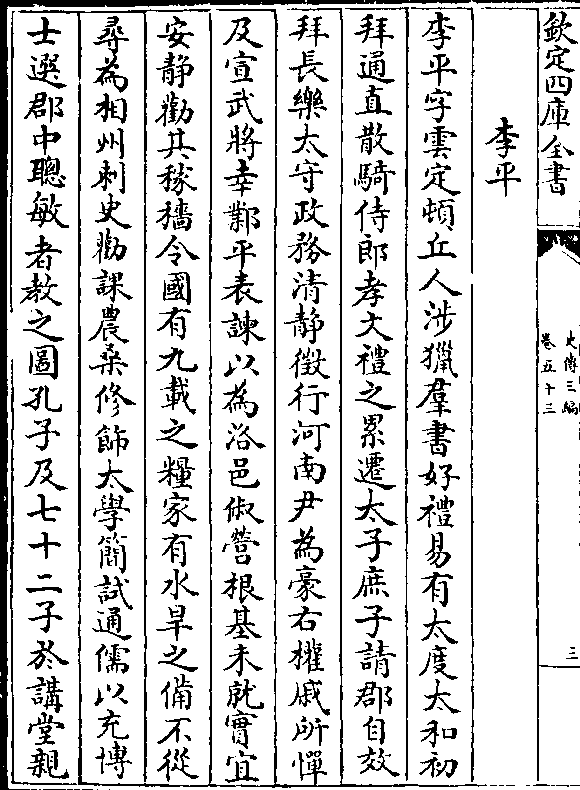 欽定四庫全書
史傳三編
卷五十三
三
李平
李平字雲定頓丘人涉獵羣書好禮易有太度太和初
拜通直散騎侍郎孝文禮之累遷太子庶子請郡自效
拜長樂太守政務清静徵行河南尹為豪右權戚所憚
及宣武將幸鄴平表諫以為洛邑俶營根基未就實宜
安静勸其稼穡令國有九載之糧家有水旱之備不從
尋為相州刺史勸課農桑修飾太學簡試通儒以充博
士選郡中聰敏者教之圖孔子及七十二子於講堂親